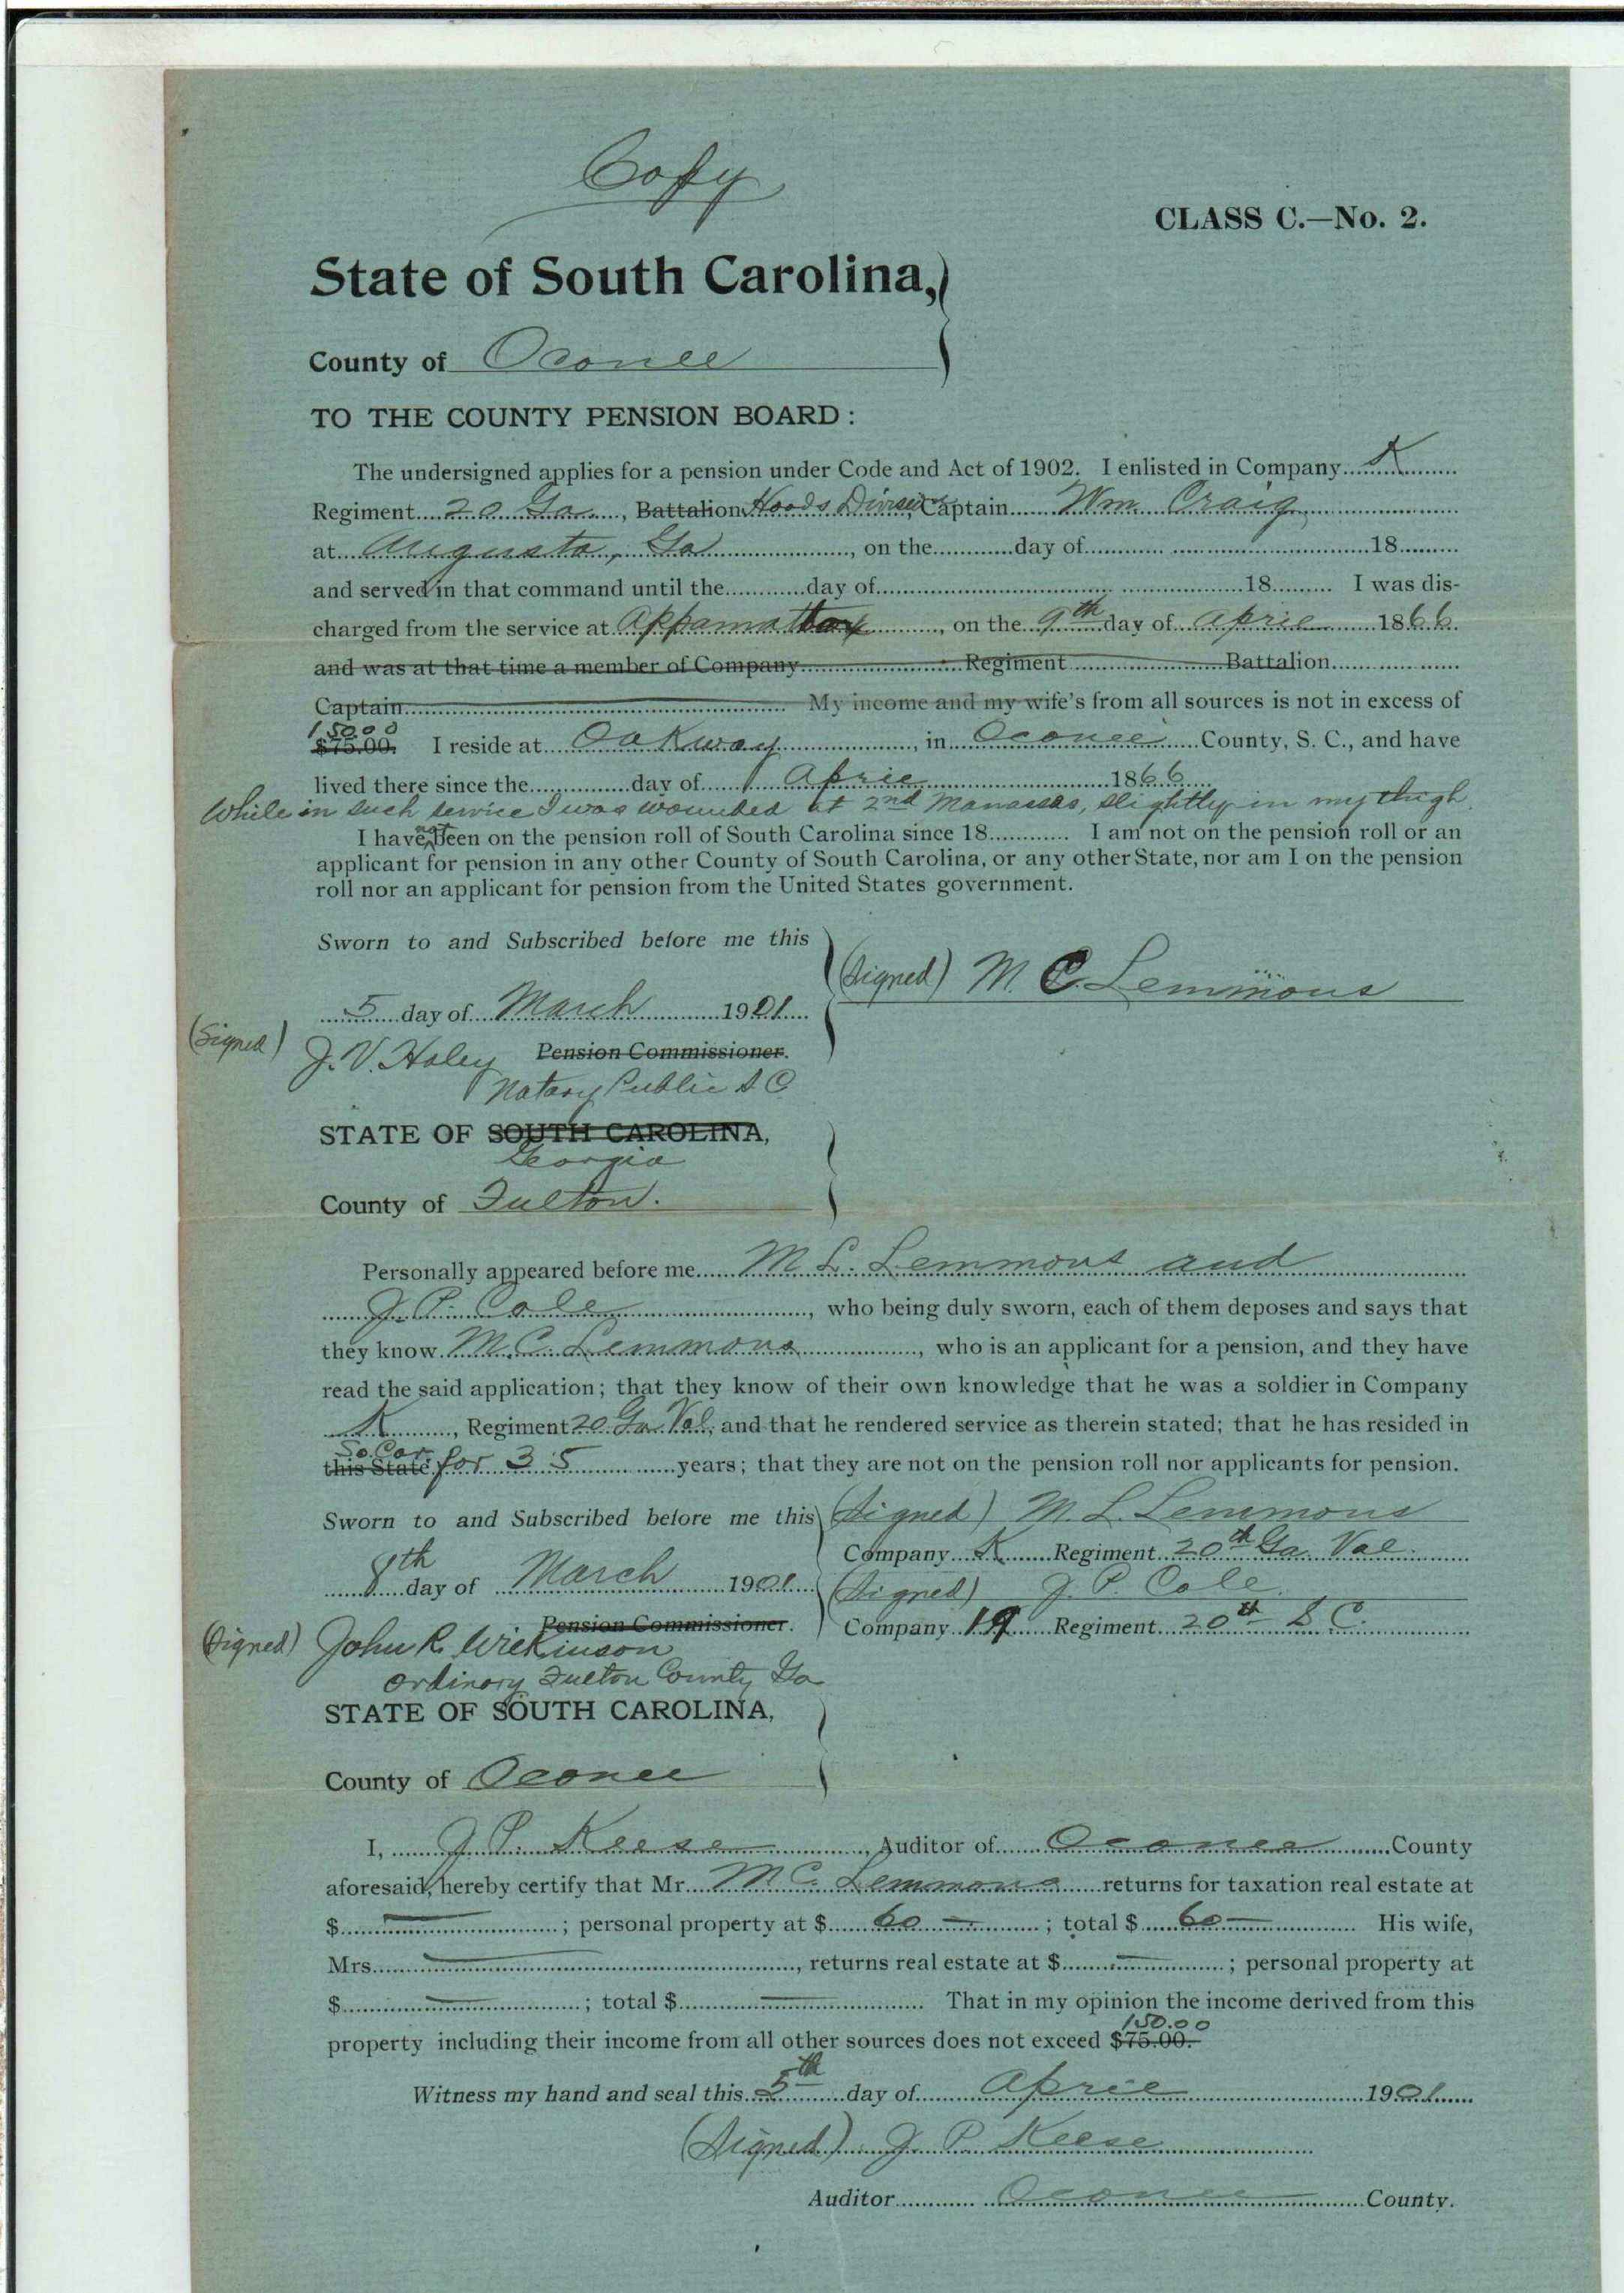 Copy
CLASS C.—No. 2.
State of South Carolina,
County of Oconee
TO THE COUNTY PENSION BOARD:
The undersigned applies for a pension under Code and Act of 1902. I enlisted in Company K
Regiment 20 Ga, Battalion Hoods Division, Captain Wm. Craig
at Augusta, Ga, on the day of 18
and served in that command until the day of 18 I was dis-
charged from the service at Appamattox, on the 9th day of April 1866
and was at that time a member of Company Regiment Battalion
Captain My income and my wife's from all sources is not in excess of
150.00
$75.00. I reside at Oakway, in Oconee County, S. C., and have
lived there since the day of April 1866
While in such service I was wounded at 2nd Manassas, slightly in my thigh
I have not been on the pension roll of South Carolina since 18 I am not on the pension roll or an
applicant for pension in any other County of South Carolina, or any other State, nor am I on the pension
roll nor an applicant for pension from the United States government.
Sworn to and Subscribed before me this
(Signed) M. C. Lemmons
5 day of March 1901
(Signed) J. V. Haley Pension Commissioner.
Notary Public S. C
STATE OF SOUTH CAROLINA,
Georgia
County of Fulton.
Personally appeared before me M L. Lemmons and
J. P. Cole, who being duly sworn, each of them deposes and says that
they know M. C. Lemmons, who is an applicant for a pension, and they have
read the said application; that they know of their own knowledge that he was a soldier in Company
K, Regiment 20 Ga Vol, and that he rendered service as therein stated; that he has resided in
So. Car.
this State for 35 years; that they are not on the pension roll nor applicants for pension.
Sworn to and Subscribed before me this (Signed) M. L. Lemmons
Company K Regiment 20th Ga Vol.
8th day of March 1901 (Signed) J. P. Cole.
Pension Commissioner. Company Regiment 20th S. C.
(Signed) John R. Wilkinson
Ordinary Fulton County Ga
STATE OF SOUTH CAROLINA,
County of Oconee
I, J. P. Keese, Auditor of Oconee County
aforesaid, hereby certify that Mr. M C. Lemmons returns for taxation real estate at
$ — ; personal property at $ 60 — ; total $ 60 — His wife,
Mrs. — , returns real estate at $ — ; personal property at
$ — ; total $ — That in my opinion the income derived from this
150.00
property including their income from all other sources does not exceed $75.00.
Witness my hand and seal this 5th day of April 1901
(Signed) J P. Keese
Auditor Oconee County.